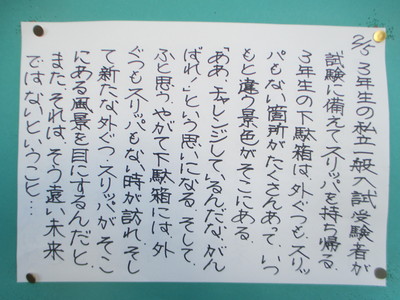 2/5 3年生の私立一般入試受験者が
試験に備えてスリッパを持ち帰る。
3年生の下駄箱は、外ぐつも、スリッ
パもない箇所がたくさんあって、いつ
もと違う景色がそこにある。
「ああ、チャレンジしているんだな、がん
ばれ。」という思いになる。そして、
ふと思う。やがて下駄箱には、外
ぐつもスリッパもない時が訪れ、そし
て新たな外ぐつ、スリッパが、そこ
にある風景を目にするんだと。
また、それは、そう遠い未来
ではないということ…